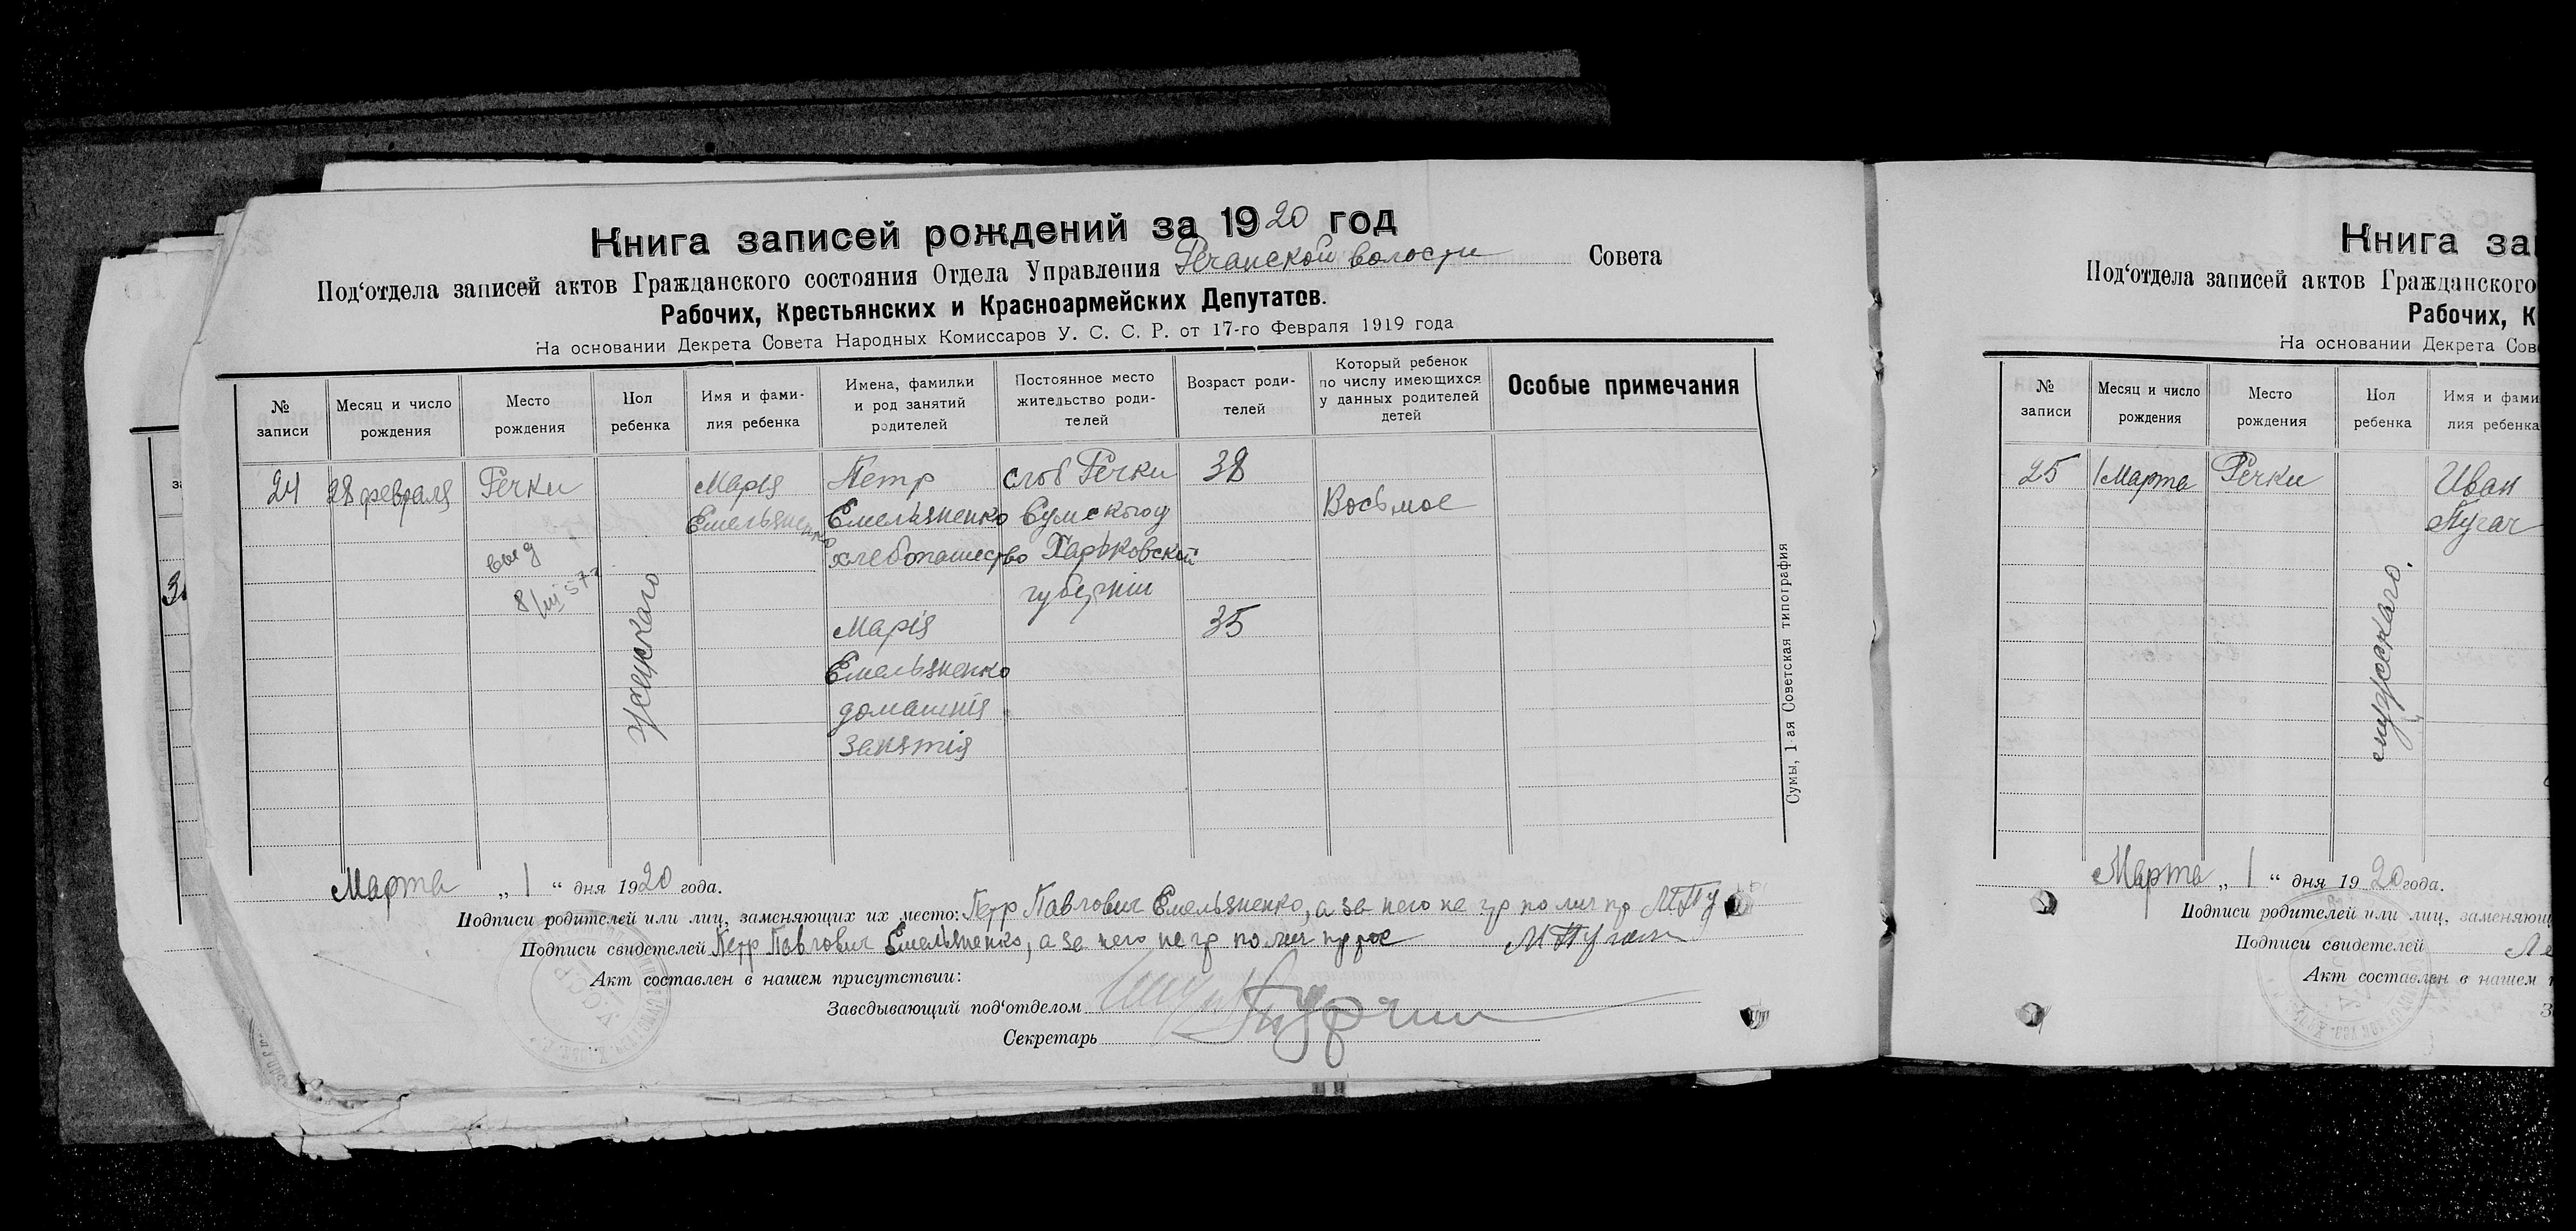 Книга записей рождений за 1920 год
Под‘отдела записей актов Гражданского состояния Отдела Управления Речанской волости Совета
Рабочих, Крестьянских и Красноармейских Депутатов.
На основании Декрета Совета Народных Комиссаров У. С. С. Р. от 17-го Февраля 1919 года
№ записи
Месяц и число рождения
Место рождения
Пол ребенка
Имя и фами-
лия ребенка
Имена, фамилии
и род занятий
родителей
Постоянное место
жительство роди-
телей
Возраст роди-
телей
Который ребенок
по числу имеющихся
у данных родителей
детей
Особые примечания
24
28 февраля
Речки
выд
женскаго
Марія
Емельяненко
Петр
Емельяненко
хлебопашество
Марія
Емельяненко
домашнія
занятія
слоб Речки
Сумского у
Харьковской
губерніи
38
35
Восьмое
Сумы, 1-ая Советская типография
Марта „ 1 “ дня 1920 года.
Подписи родителей или лиц, заменяющих их место: Петр Павлович Емельяненко, а за него не гр по лич пр М Пу
Подписи свидетелей Петр Павлович Емельяненко, а за него не гр по лич М Пугач
Акт составлен в нашем присутствии:
Заведывающий под‘отделом
Секретарь
Книга за
Под‘отдела записей актов Гражданского
Рабочих, К
На основании Декрета Сов
№ записи
Месяц и число рождения
Место рождения
Пол ребенка
Имя и фами
лия ребенка
25
1 Марта
Речки
мужескаго.
Иван
Пугач
Марта „ 1 “ дня 1920 года.
Подписи родителей или лиц, заменяющ
Подписи свидетелей
Акт составлен в нашем